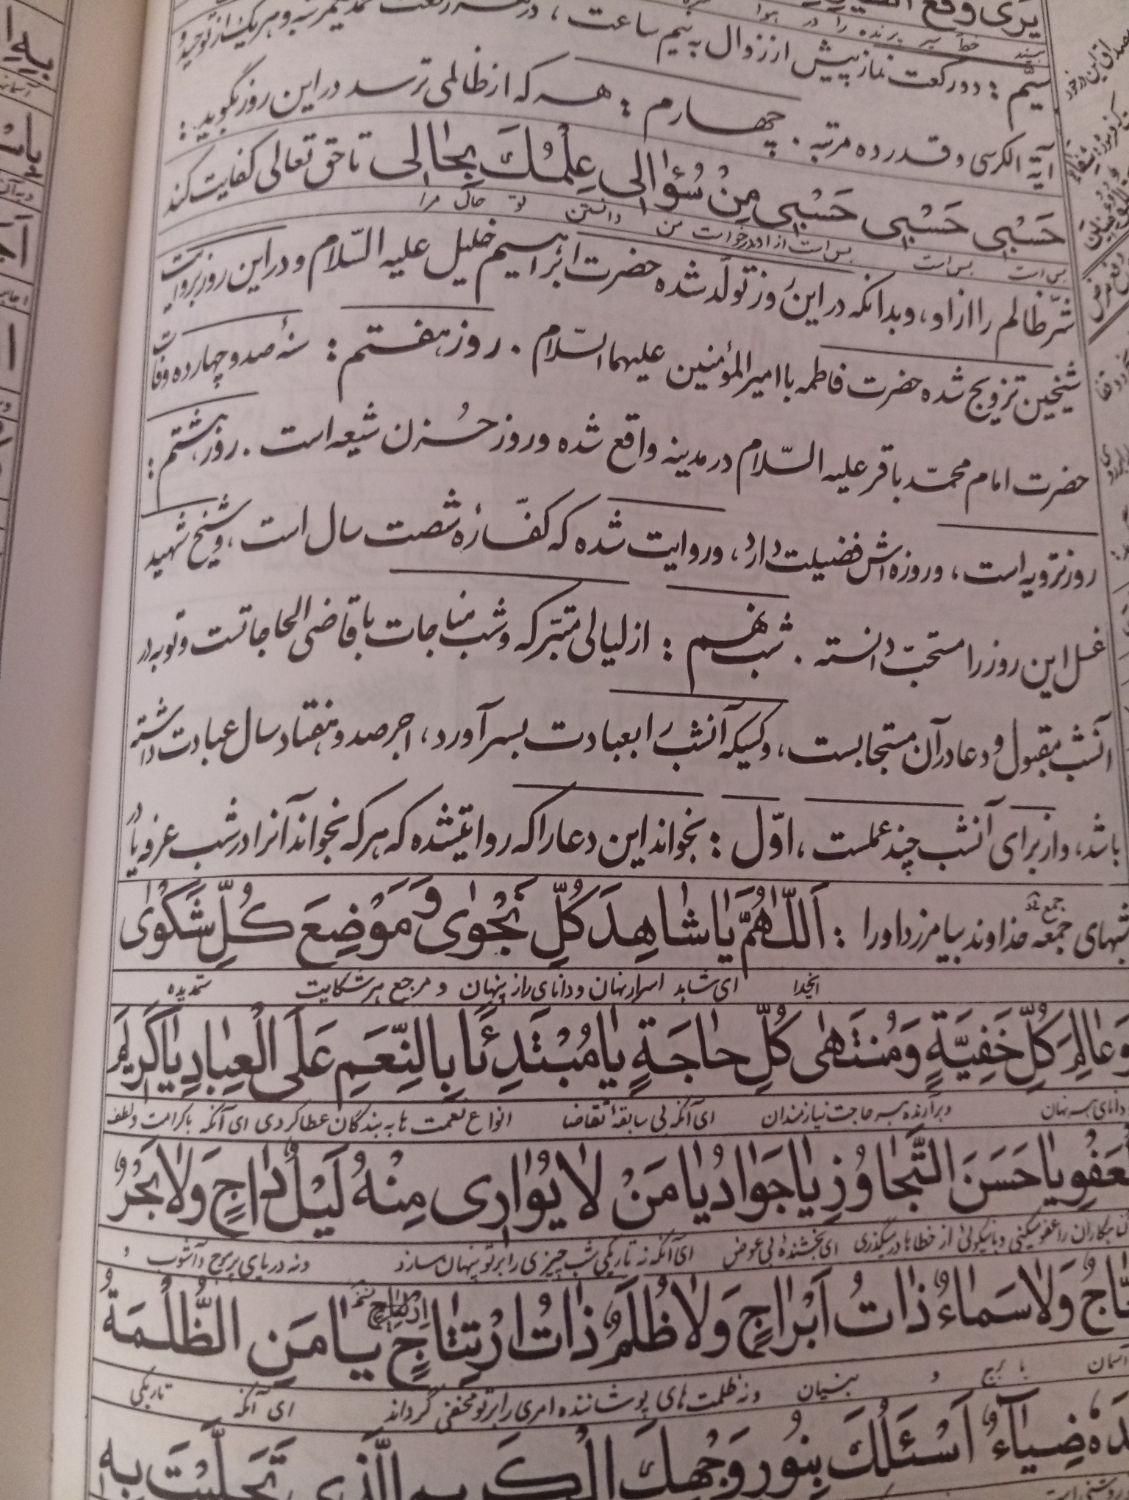 یری وقع
بیند خط سیر پرنده را در هوا
سیّم : دو رکعت نماز پیش از زوال به نیم ساعت ، در هر رکعت حمد یکمرتبه و هر یک از توحید و
آیة الکرسی و قدر ده مرتبه . چهارم : هر که از ظالمی ترسد در این روز بگوید :
حَسْبِی حَسْبِی حَسْبِی مِنْ سُؤٰالِی عِلْمُكَ بِحٰالِی تا حق تعالی کفایت کند
بس است بس است بس است از درخواست من دانستن تو حال مرا
شرّ ظالم را از او ، و بدانکه در این روز تولّد شده حضرت ابراهیم خلیل علیه السّلام و در این روز بروایت
شیخین تزویج شده حضرت فاطمه با امیر المؤمنین علیهما السّلام . روز هفتم : سنهٔ صد و چهارده وفات
حضرت امام محمّد باقر علیه السّلام در مدینه واقع شده و روز حزن شیعه است . روز هشتم :
روز ترویه است ، و روزه‌اش فضیلت دارد ، و روایت شده که کفّارهٔ شصت سال است ، و شیخ شهید
غسل این روز را مستحبّ دانسته . شب نهم : از لیالی متبرّکه و شب مناجات با قاضی الحاجاتست و توبه در
آنشب مقبول و دعا در آن مستجابست ، و کسیکه آنشب را بعبادت بسر آورد ، اجر صد و هفتاد سال عبادت داشته
باشد ، و از برای آنشب چند عملست ، اوّل : بخواند این دعا را که روایتشده که هر که بخواند آنرا در شب عرفه یا در
شبهای جمعه خداوند بیامرزد او را : اَللّٰهُمَّ یٰا شٰاهِدَ کُلِّ نَجْوٰی وَ مَوْضِعَ کُلِّ شَکْوٰی
ایخدا ای شاهد اسرار نهان و دانای راز پنهان و مرجع هر شکایت ستمدیده
وَ عٰالِمَ کُلِّ خَفِیَّةٍ وَ مُنْتَهٰی کُلِّ حٰاجَةٍ یٰا مُبْتَدِئًا بِالنِّعَمِ عَلَی الْعِبٰادِ یٰا کَرِیمَ
دانای هر نهان و برآرنده هر حاجت نیازمندان ای آنکه بی سابقهٔ تقاضا انواع نعمت ها به بندگان عطا کردی ای آنکه با کرامت و لطف
الْعَفْوِ یٰا حَسَنَ التَّجٰاوُزِ یٰا جَوٰادُ یٰا مَنْ لٰا یُوٰارِی مِنْهُ لَیْلٌ دٰاجٍ وَلٰا بَحْرٌ
بدکاران را عفو میکنی و بانیکوئی از خطاها در میگذری ای بخشندهٔ بی عوض ای آنکه نه تاریکی شب چیزی را بر تو پنهان سازد و نه دریای پر موج و آشوب و
عَجّٰاجٌ وَلٰا سَمٰاءٌ ذٰاتُ اَبْرٰاجٍ وَلٰا ظُلَمٌ ذٰاتُ ارْتِتٰاجٍ یٰا مَنِ الظُّلْمَةُ
آسمان با برج و بنیان و نه ظلمت های پوشاننده امری را بر تو مخفی گرداند ای آنکه تاریکی
عِنْدَهُ ضِیٰآءٌ اَسْئَلُكَ بِنُورِ وَجْهِكَ الْکَرِیمِ الَّذِی تَجَلَّیْتَ بِهِ